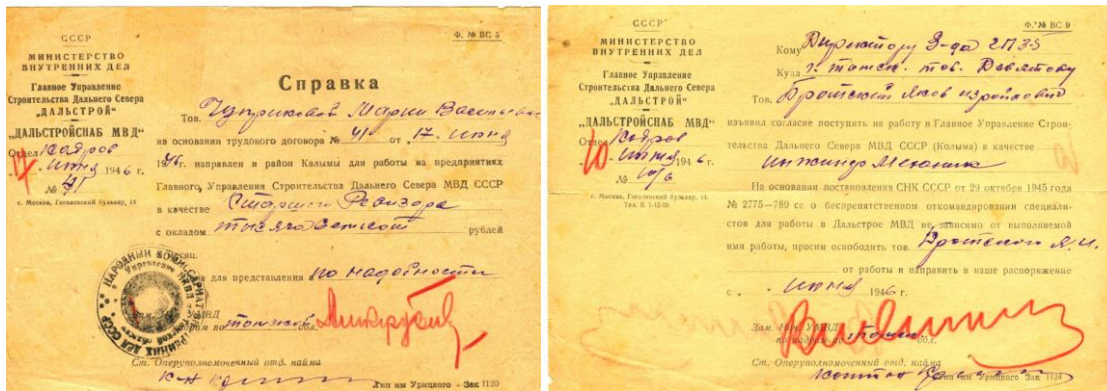 СССР
Ф. № ВС 5
МИНИСТЕРСТВО
ВНУТРЕННИХ ДЕЛ
Главное Управление
Строительства Дальнего Севера
„ДАЛЬСТРОЙ“
„ДАЛЬСТРОЙСНАБ МВД“
Отдел Кадров
17 июня 1946 г.
№
г. Москва, Гоголевский бульвар, 14
Справка
Тов. Чуприковой Марии
на основании трудового договора № 41 от „17. июня
1946г. направлен в район Калымы для работы на предприятиях
Главного Управления Строительства Дальнего Севера МВД СССР
в качестве Старшего Ревизора
с окладом тысяча рублей
для представления по надобности
Зам. УМВД
по обл.
Ст. Оперуполномоченный отд. найма
Тип им Урицкого - Зак 1120
СССР
Ф. № ВС 9
МИНИСТЕРСТВО
ВНУТРЕННИХ ДЕЛ
Главное Управление
Строительства Дальнего Севера
„ДАЛЬСТРОЙ“
„ДАЛЬСТРОЙСНАБ МВД“
Отдел Кадров
10 июня 1946 г.
№
г. Москва, Гоголевский бульвар, 14.
Кому Директору З-да
Куда г. Томск. тов. Девятову
Тов. Яков
изъявил согласие поступить на работу в Главное Управление Строи-
тельства Дальнего Севера МВД СССР (Колыма) в качестве
На основании постановления СНК СССР от 29 октября 1945 года
№ 2775—789 сс о беспрепятственном откомандировании специали-
стов для работы в Дальстрое МВД не зависимо от выполняемой
ими работы, просим освободить тов.
от работы и направить в наше распоряжение
с „ июня 1946 г.
Зам. Нач. УМВД
по кадрам по обл.
Ст. Оперуполномоченный отд. найма
Урицкого Зак 1124